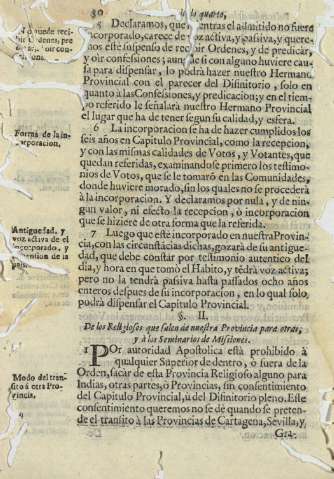 80
5 Declaramos, que entras el admitido no fuere
incorporado, carece de voz activa, y passiva, y quere-
mos esté suspenso de recibir Ordenes, y de predicar,
y oir confessiones; aunque si con alguno huviere cau-
sa para dispensar, lo podrá hazer nuestro Hermano
Provincial con el parecer del Difinitorio, solo en
quanto à las Confessiones, y predicacion; y en el tiem-
po referido le señalarà nuestro Hermano Provincial
el lugar que ha de tener segun su calidad, y esfera.
Forma de la in-
corporacion.
6 La incorporacion se ha de hazer cumplidos los
seis años en Capitulo Provincial, como la recepcion,
y con las mismas calidades de Votos, y Votantes, que
quedan referidas, examinandose primero los testimo-
nios de Votos, que se le tomarõ en las Comunidades,
donde huviere morado, sin los quales no se procederà
à la incorporacion. Y declaramos por nula, y de nin-
gun valor, ni efecto la recepcion, ò incorporacion
que se hiziere de otra forma que la referida.
Antiguedad, y
voz activa de el
incorporado, y
7 Luego que esté incorporado en nuestra Provin-
cia, con las circunstãcias dichas, gozarà de su antigue-
dad, que debe constar por testimonio autentico del
dia, y hora en que tomò el Habito, y tẽdrà voz activa;
pero no la tendrà passiva hasta passados ocho años
enteros despues de su incorporacion, en lo qual solo,
podrà dispensar el Capitulo Provincial.
§. II.
De los Religiosos que salen de nuestra Provincia para otras,
y à los Seminarios de Missiones.
Modo del tran-
sito à otra Pro-
vincia.
1 POr autoridad Apostolica està prohibido à
qualquier Superior de dentro, ò fuera de la
Orden, sacar de esta Provincia Religioso alguno para
Indias, otras partes, ò Provincias, sin consentimiento
del Capitulo Provincial, ù del Difinitorio pleno. Este
consentimiento queremos no se dé quando se preten-
de el transito à las Provincias de Cartagena, Sevilla, y
Gra-